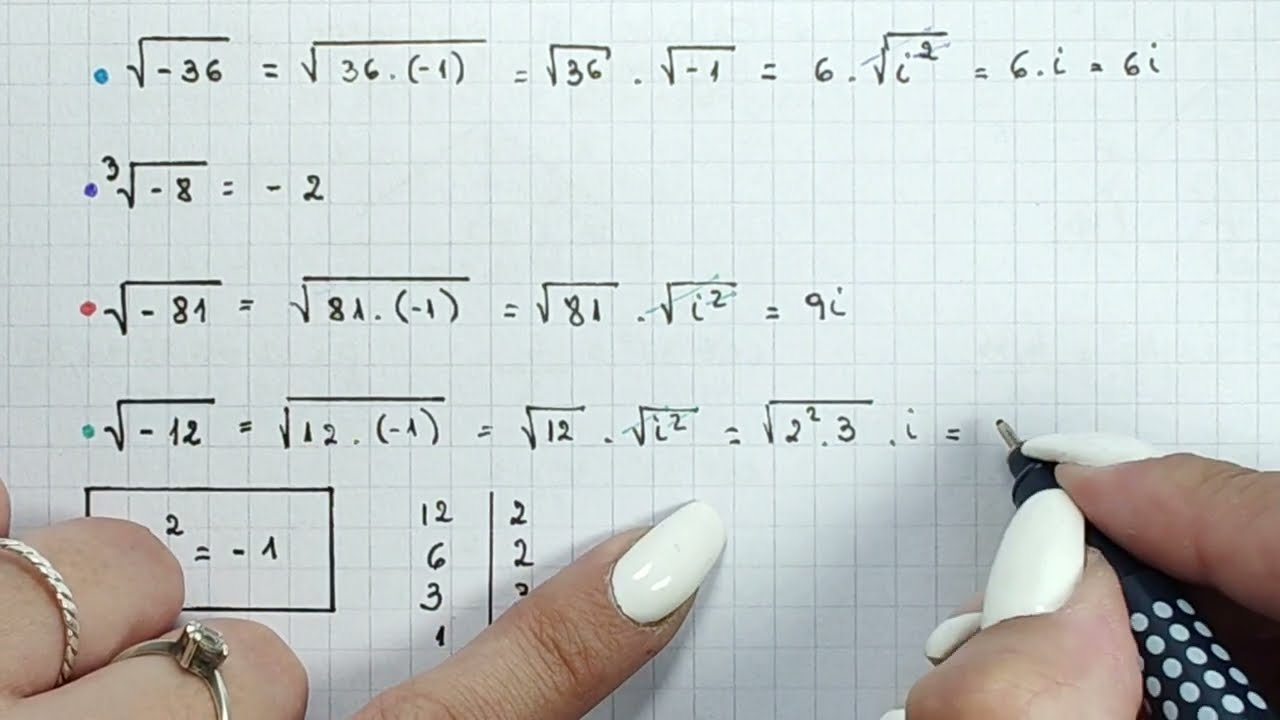 √-36 = √36.(-1) = √36 . √-1 = 6 . √i² = 6.i = 6i
³√-8 = - 2
√-81 = √81.(-1) = √81 . √i² = 9i
√-12 = √12.(-1) = √12 . √i² = √2².3 . i =
² = -1
12 | 2
6 | 2
3 |
1